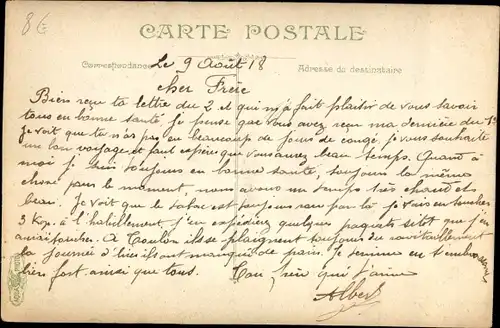 8€
CARTE POSTALE
Correspondance
Adresse du destinataire
Le 9 Août 18
Cher Frère
Bien reçu ta lettre du 2 et qui m'a fait plaisir de vous savoir
tous en bonne santé, je pense que vous avez reçu ma dernière du 1er
Je vois que tu n'as pas eu beaucoup de jours de congé, je vous souhaite
un bon voyage et faut espérer que vous aurez beau temps. Quant à
moi je suis toujours en bonne santé, toujours la même
chose pour le moment, nous avons un temps très chaud et
beau. Je vois que le tabac est toujours rare par là je vais en toucher
3 à l'habillement j'en expédierai quelques paquets sitôt que j'en
aurai A Toulon ils se plaignent toujours du ravitaillement
la journée d'hier ils ont manqué de pain. Je termine en t'embrassant
bien fort ainsi que tous. Ton frère qui t'aime
Albert